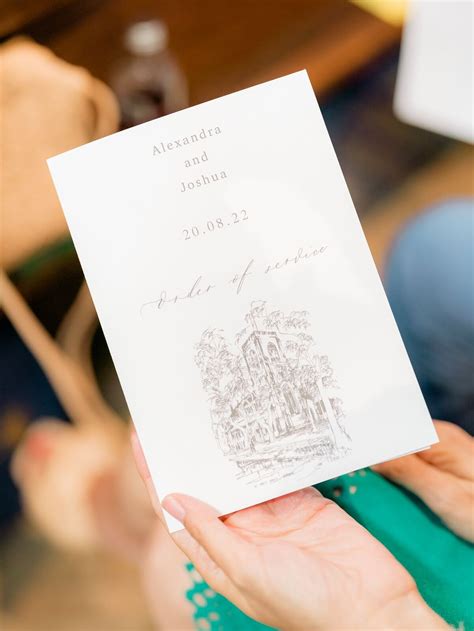 Alexandra
and
Joshua
20.08.22
order of service